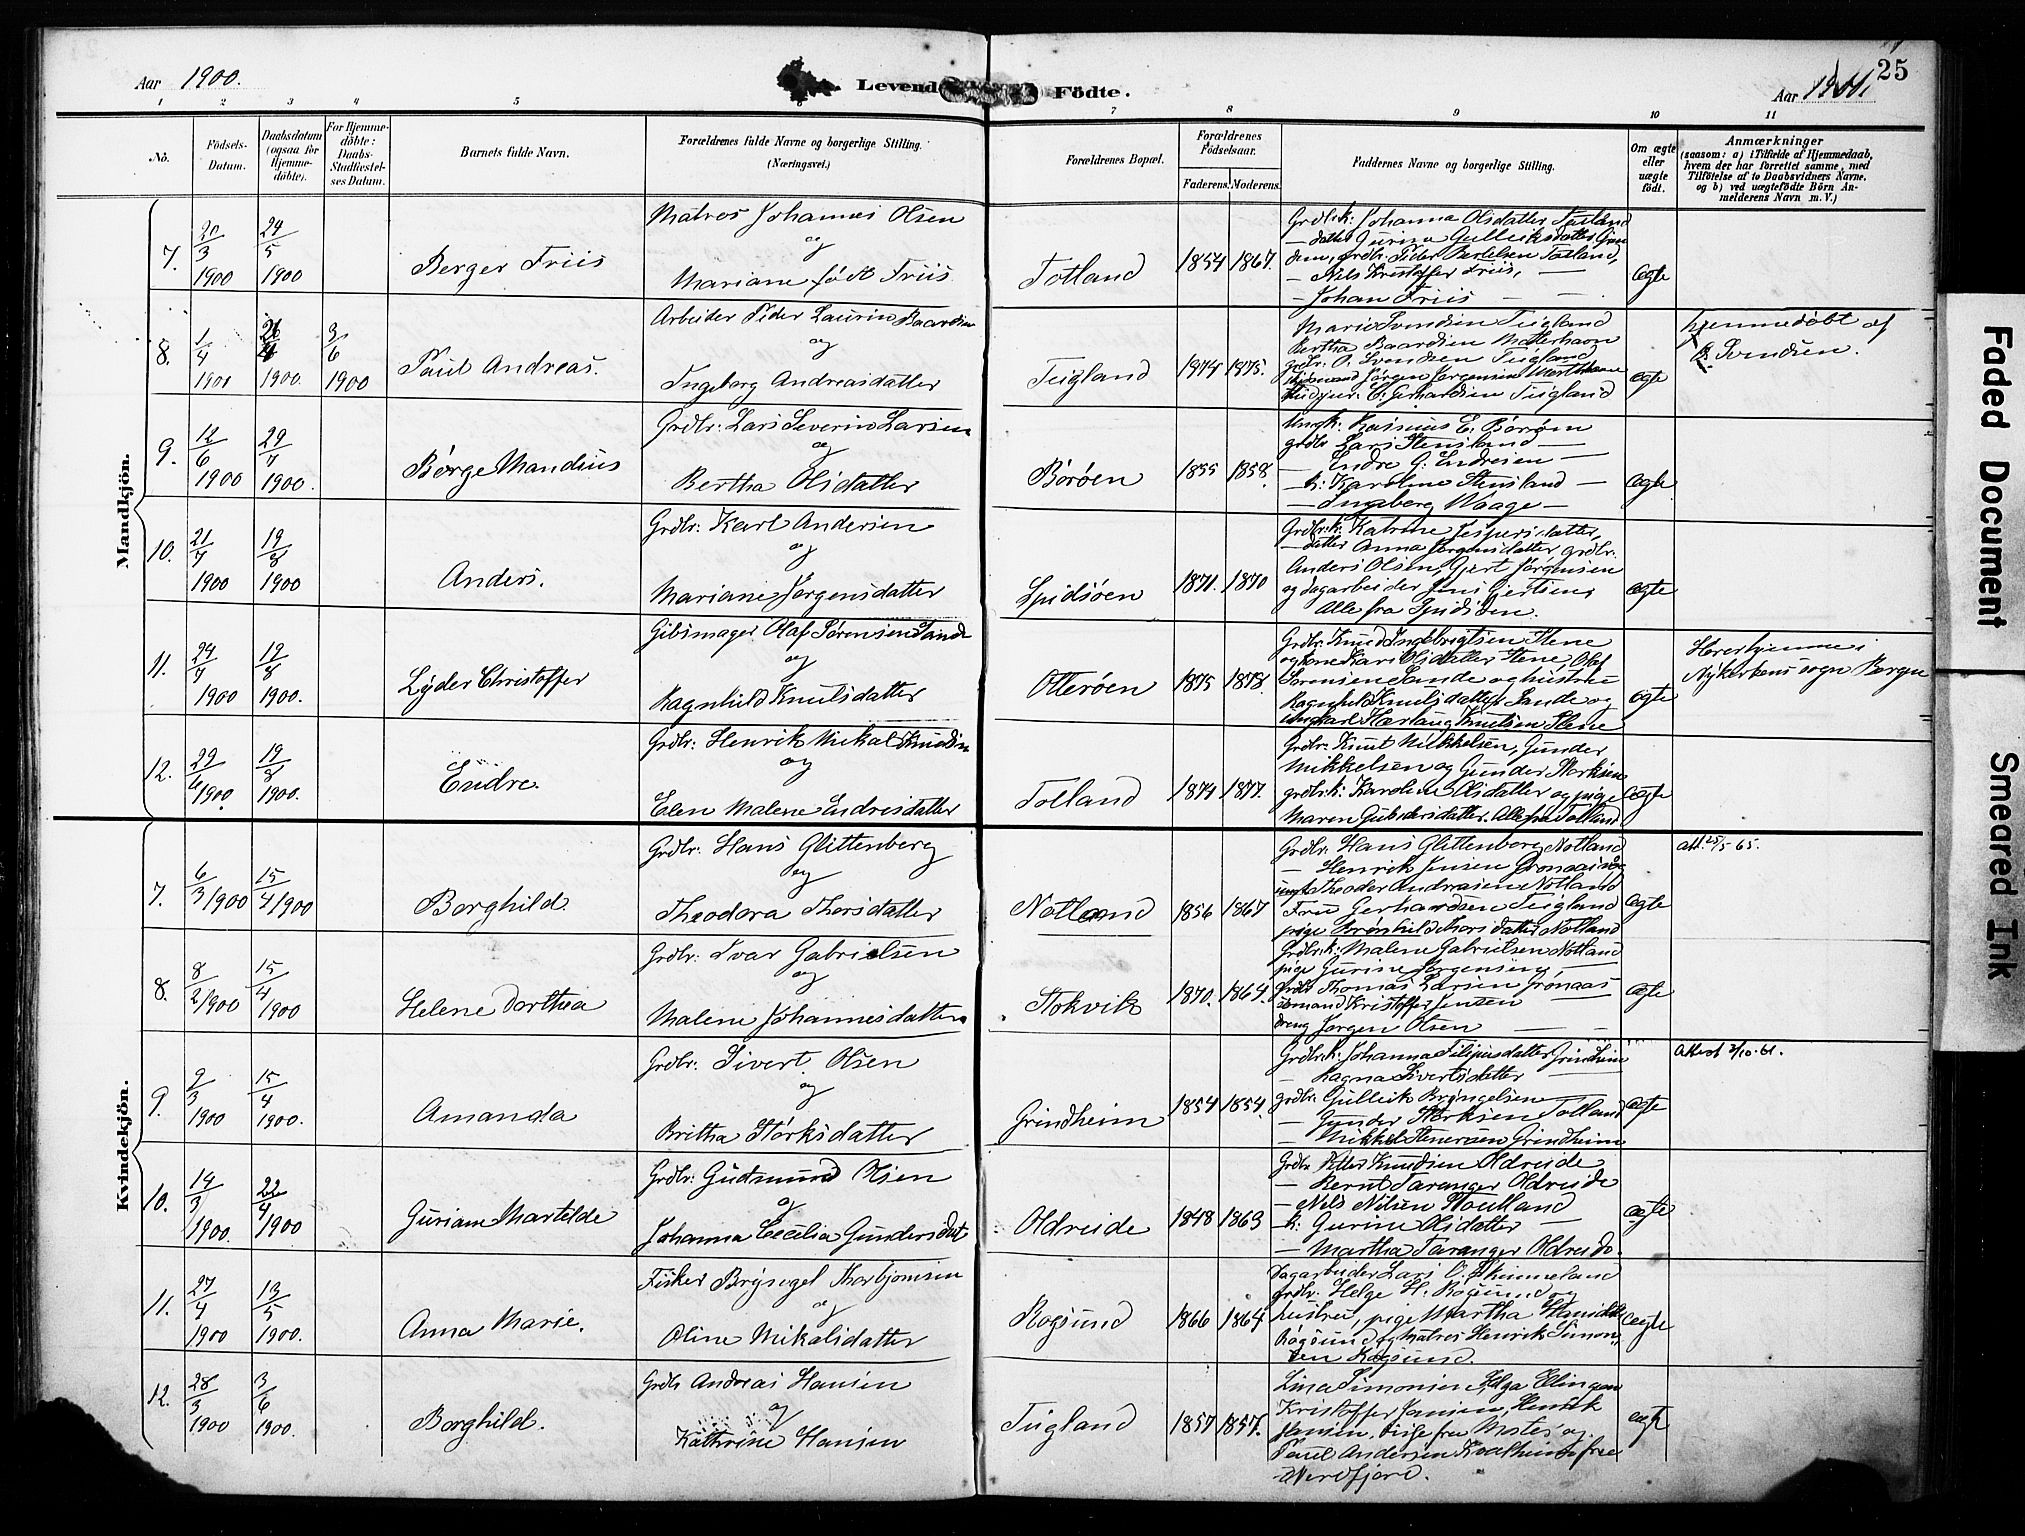 Aar 1900.
Levende Födte.
Aar
25
1 2 3 4 5 7 8 9 10 11
No.
Födsels-Datum.
Daabsdatum (ogsaa for Hjemme-döbte).
For Hjemme-döbte: Daabs-Stadfæstel-ses Datum.
Barnets fulde Navn.
Forældrenes fulde Navne og borgerlige Stilling.
(Næringsvei.)
Forældrenes Bopæl.
Forældrenes Födselsaar.
Faderens. Moderens.
Faddernes Navne og borgerlige Stilling.
Om ægte eller uægte födt.
Anmærkninger
(saasom: a) i Tilfælde af Hjemmedaab,
hvem der har forrettet samme, med
Tilföielse af to Daabsvidners Navne,
og b) ved uægtefödte Börn An-
melderens Navn m. V.)
Mandkjön.
7. 20/3 1900 24/5 1900
Berger Friis
Matros Johannes Olsen
og
Mariane født Friis
Totland 1854 1867.
Grdlr.k: Johanna Olsdatter Totland
— datter Gurina Gulleiksdatter
grdlr: Peder Bertelsen Totland,
— Nils Kristoffer Friis, —
— Johan Friis — —
ægte
8. 1/4 1900 1900. 3/6 1900
Paul Andreas.
Arbeider Peder Laurin Baardsen
og
Ingeborg Andreasdatter
Teigland 1874 1875.
Marie Svendsen Teigland
Bertha Baardsen
grdlr. O. Svendsen Teigland
Jørgen Jørgensen
C. Gerhardsen Teigland
ægte
hjemmedøbt af
O. Svendsen.
9. 12/6 1900 29/7 1900.
Børge Mandius
Grdlr: Lars Severin Larsen
og
Bertha Olsdatter
Børøen 1855 1858.
Ungk: Rasmus E. Børøen
grdlr Lars Stensland —
— Endre G. Endresen —
— k: Karoline Stensland —
— Ingeborg Waage —
ægte
10. 21/7 1900 19/8 1900
Anders.
Grdlr: Karl Andersen
og
Mariane Jørgensdatter
Spidsøen 1871. 1870
Grdlr.k: Katrine Jespersdatter,
— datter Anna Jørgensdatter grdlr.
Anders Olsen, Gjert Jørgensen
og dagarbeider Jens Gjertsen,
Alle fra Spidsøen.
ægte
11. 24/7 1900 19/8 1900.
Lyder Christoffer
Gibsmager Olaf Sørensen Sande
og
Ragnhild Knutsdatter
Otterøen 1875 1878.
Grdlr: Knud Ingebrigtsen Stene
og kone Kari Olsdatter Stene, Olaf
Sørensen Sande og hustru
Ragnhild Knutsdatter Sande og
ungkarl Hærlaug Knutsen Stene
ægte
Hører hjemme i
Nykirkens sogn Bergen
12. 29/6 1900 19/8 1900.
Endre.
Grdlr: Henrik Mikal Knudsen
og
Elen Malene Endresdatter
Totland 1874 1877.
Grdlr: Knut Mikkelsen, Gunder
Mikkelsen og Gunder Størksen
grdlr.k: Karoline Olsdatter og pige
Maren Gundersdatter. Alle fra Totland
ægte
Kvindekjön.
7. 6/3 1900 15/4 1900
Borghild.
Grdlr: Hans Glittenberg
og
Theodora Thorsdatter
Notland 1856 1867
Grdlr: Hans Glittenberg Notland
— Henrik Jensen Grønaas
ungk. Theodor Andreasen Notland
Fru Gerhardsen Teigland
pige Brønhild Thorsdatter Notland
ægte
att. 25/5-65.
8. 8/2 1900 15/4 1900
Helene Dorthea
Grdlr: Ivar Gabrielsen
og
Malene Johannesdatter
Stokvik 1870. 1864.
Grdlr.k: Malene Gabrielsen Notland
pige Gurine Jørgensen, —
Grdlr Thomas Larsen Grønaas
sømand Kristoffer Jensen —
dreng Jørgen Olsen — —
ægte
9. 2/3 1900 15/4 1900.
Amanda
Grdlr: Sivert Olsen
og
Britha Størksdatter
Grindheim 1854 1854.
Grdlr.k: Johanna Filipusdatter Grindheim
— Ragna Sivertsdatter —
grdlr: Gulleik Bryngelsen —
— Gunder Størksen Totland
— Mikkel Stenersen Grindheim
ægte
Attest 3/10-61.
10. 14/3 1900. 22/4 1900
Guriane Martilde
Grdlr: Gudmund Olsen
og
Johanna Cecilia Gundersdat
Oldreide 1848 1863
Grdlr Peder Knudsen Oldreide
— Bernt Taranger Oldreide
— Nils Nilsen Stoutland
— k: Gurine Olsdatter —
— Martha Taranger Oldreide
ægte
11. 27/4 1900 13/5 1900.
Anna Marie.
Fisker Brynjel Thorbjørnsen
og
Oline Mikalsdatter
Røgsund 1866 1864
Dagarbeider Lars O. Skimmeland
grdlr. Helge H. Røgsund og
hustru, pige Martha
Røgsund og Matros Henrik Simon-
sen Røgsund.
ægte
12. 28/3 1900 3/6 1900.
Borghild.
Grdlr Andreas Hansen
og
Kathrine Hansen
Teigland 1857 1857.
Lina Simonsen, Helga Ellingsen
Kristoffer Jansen, Henrik
Hansen, Øvrige fra Moster og
Paul Andersen Kvalheim fra
Nordfjord.
ægte
Faded Document
Smeared Ink